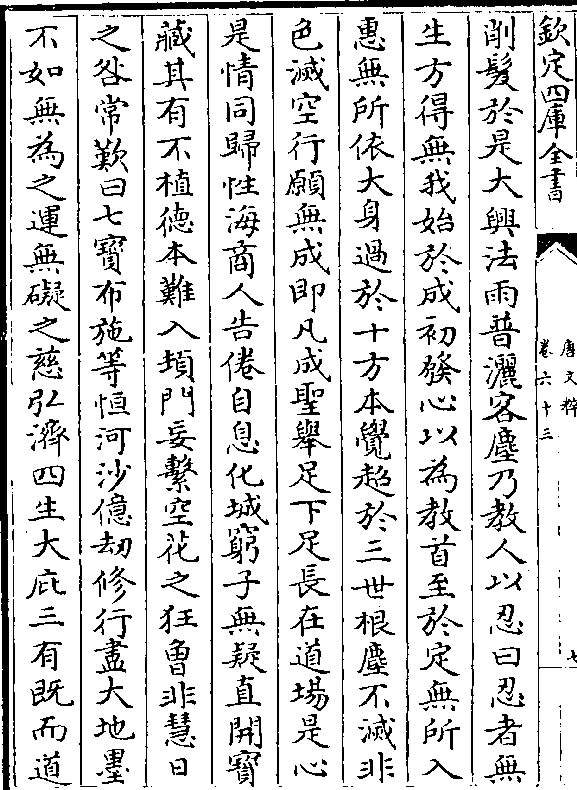 欽定四庫全書
唐文粹
卷六十三
七
削髮於是大興法雨普灑客塵乃教人以忍曰忍者無
生方得無我始於成初發心以為教首至於定無所入
惠無所依大身過於十方本覺超於三世根塵不滅非
色滅空行願無成即凡成聖舉足下足長在道場是心
是情同歸性海商人告倦自息化城窮子無疑直開寶
藏其有不植德本難入頓門妄繫空花之狂曾非慧日
之咎常歎曰七寶布施等恒河沙億劫修行盡大地墨
不如無為之運無礙之慈弘濟四生大庇三有既而道